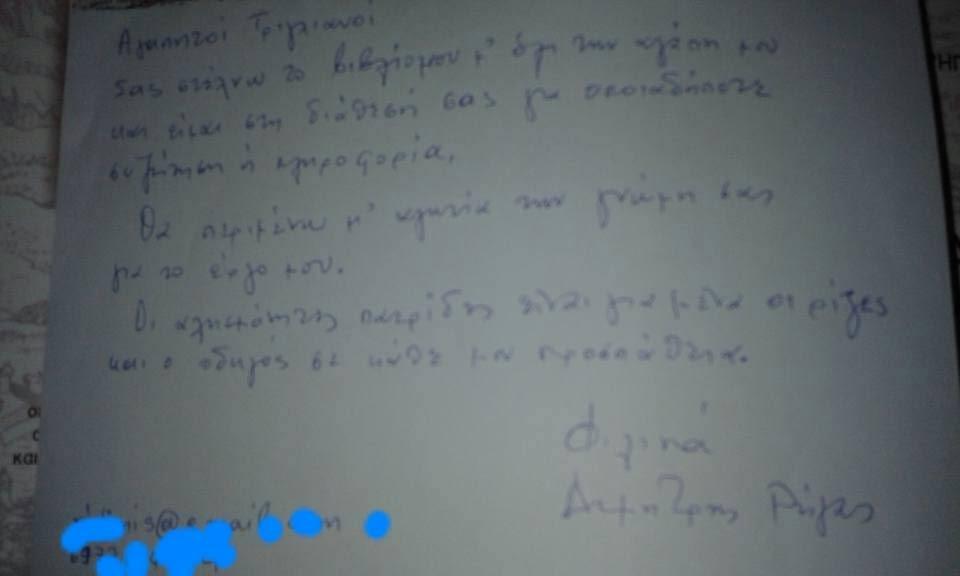 Αγαπητοί Τριγλιανοί
Σας στέλνω το βιβλίο μου μ' όλη την αγάπη μου
και είμαι στη διάθεσή σας για οποιαδήποτε
συζήτηση ή πληροφορία.
Θα περιμένω μ' αγωνία την γνώμη σας
για το έργο μου.
Οι αλησμόνητες πατρίδες είναι για μένα οι ρίζες
και ο οδηγός σε κάθε μου προσπάθεια.
Φιλικά
Δημήτρης
και